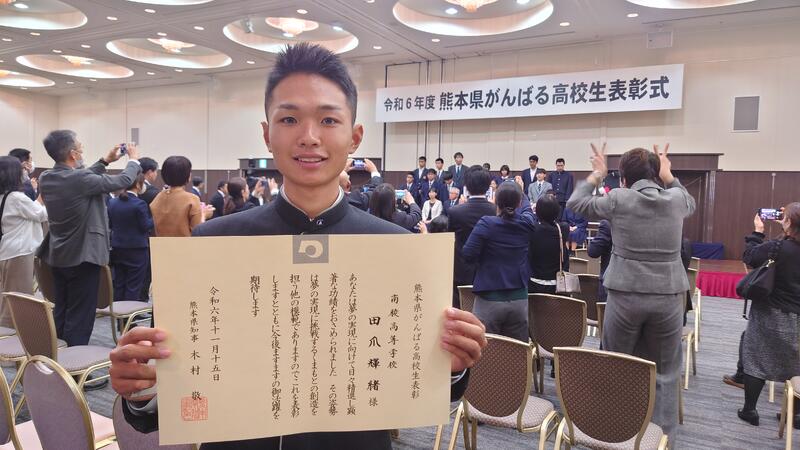 令和6年度 熊本県がんばる高校生表彰式
熊本県がんばる高校生表彰
高等学校
田爪輝緒 様
あなたは夢の実現に向けて日々精進し顕
著な功績をおさめられました その姿勢
は夢の実現に挑戦するくまもとの創造を
担う他の模範でありますのでこれを表彰
しますとともに今後ますますの御活躍を
期待します
令和六年十一月十五日
熊本県知事 木村 敬